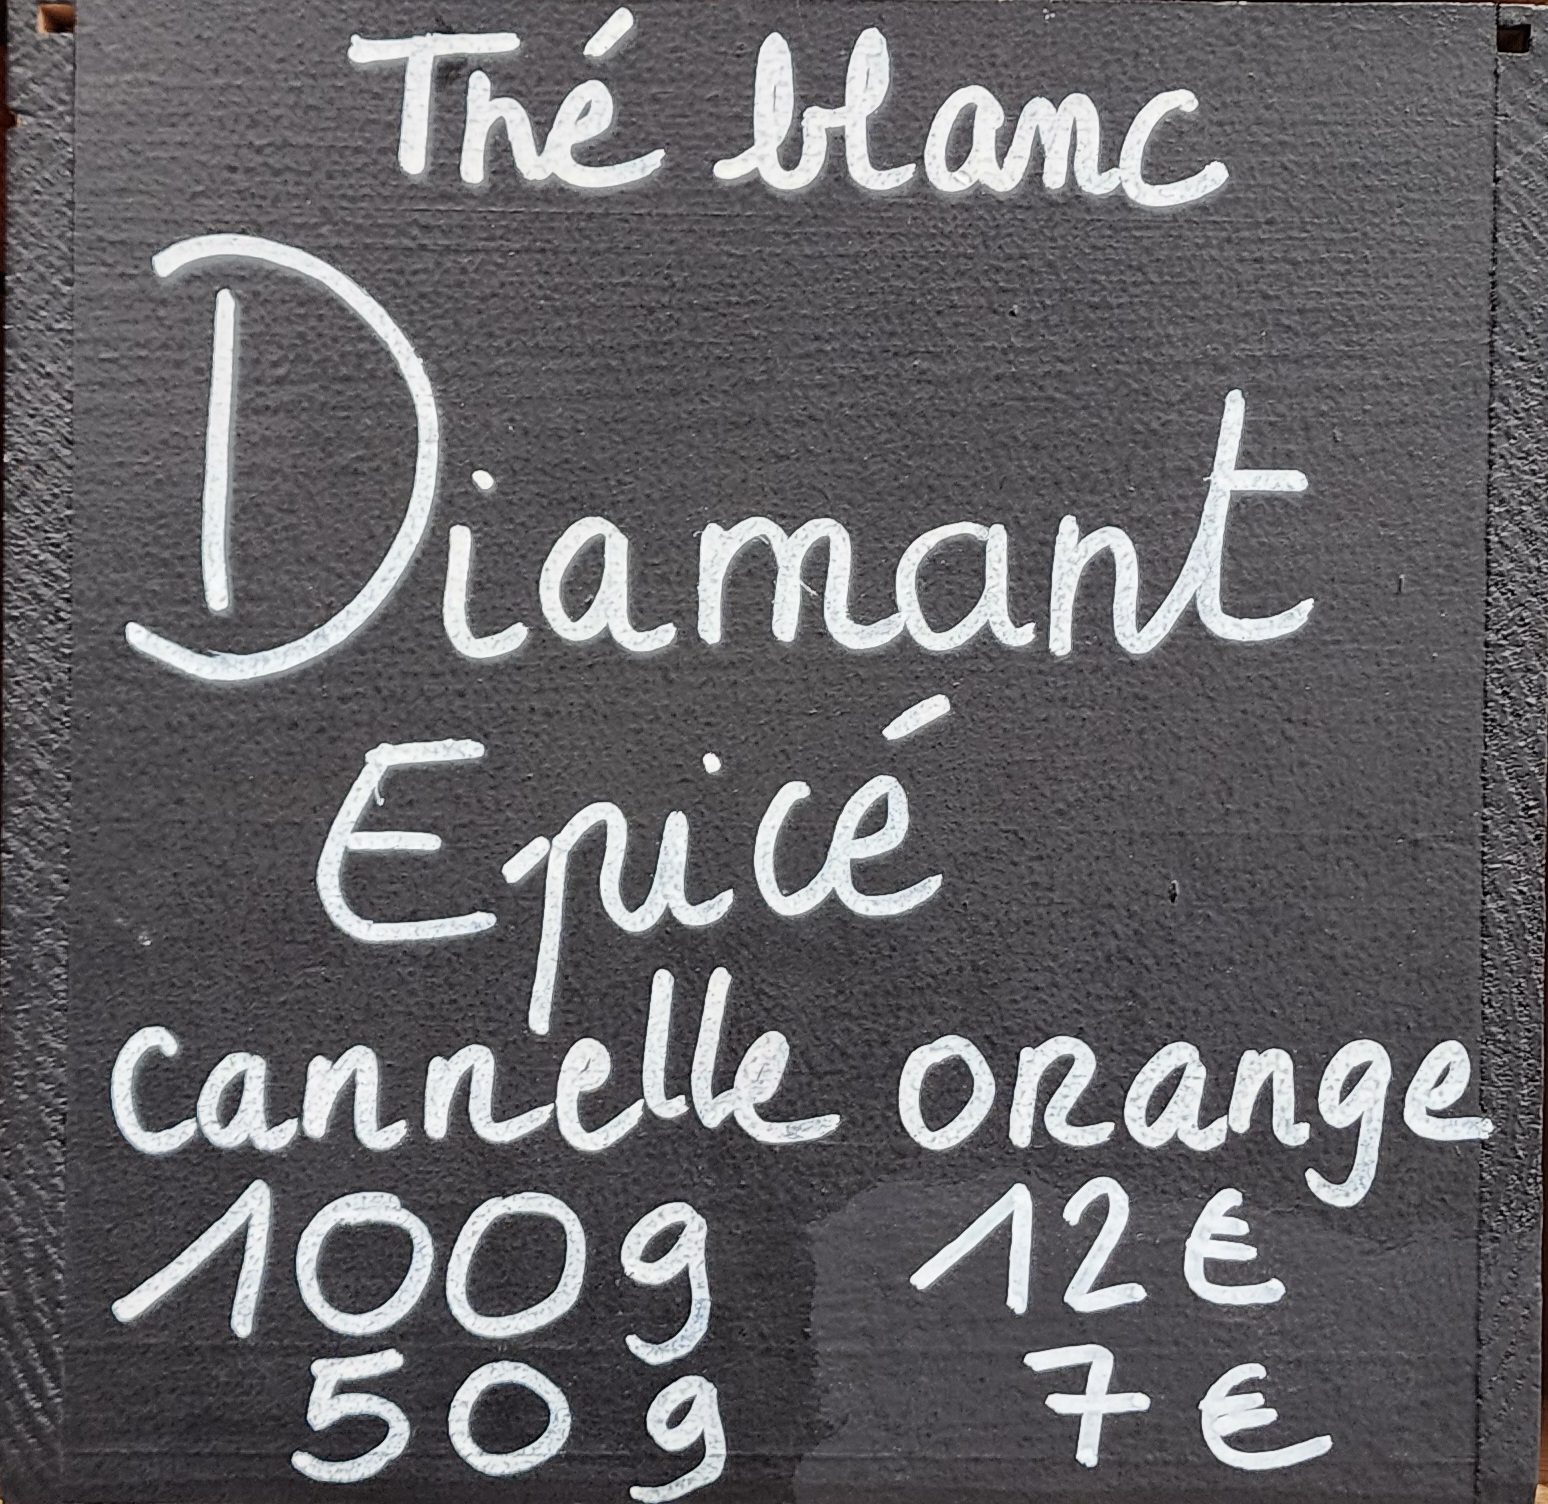 Thé blanc
Diamant
Epicé
cannelle orange
100g 12€
50g 7€